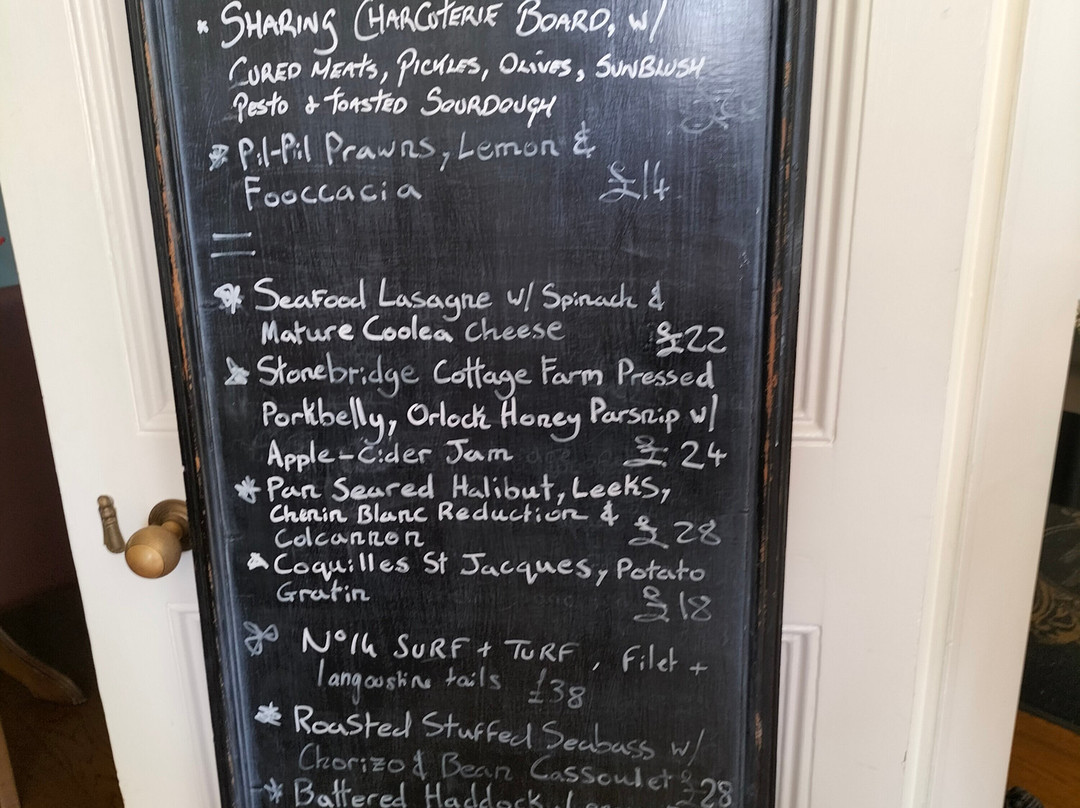 * SHARING CHARCUTERIE BOARD, w/
CURED MEATS, PICKLES, OLIVES, SUNBLUSH
Pesto & TOASTED SOURDOUGH
* Pil-Pil Prawns, Lemon &
Fooccacia £14
=
* Seafood Lasagne w/ Spinach &
Mature Coolea Cheese £22
* Stonebridge Cottage Farm Pressed
Porkbelly, Orlock Honey Parsnip w/
Apple-Cider Jam £24
* Pan Seared Halibut, Leeks,
Chenin Blanc Reduction &
Colcannon £28
* Coquilles St Jacques, Potato
Gratin £18
* No14 SURF + TURF, Filet +
langoustine tails £38
* Roasted Stuffed Seabass w/
Chorizo & Bean Cassoulet £28
* Battered Haddock,